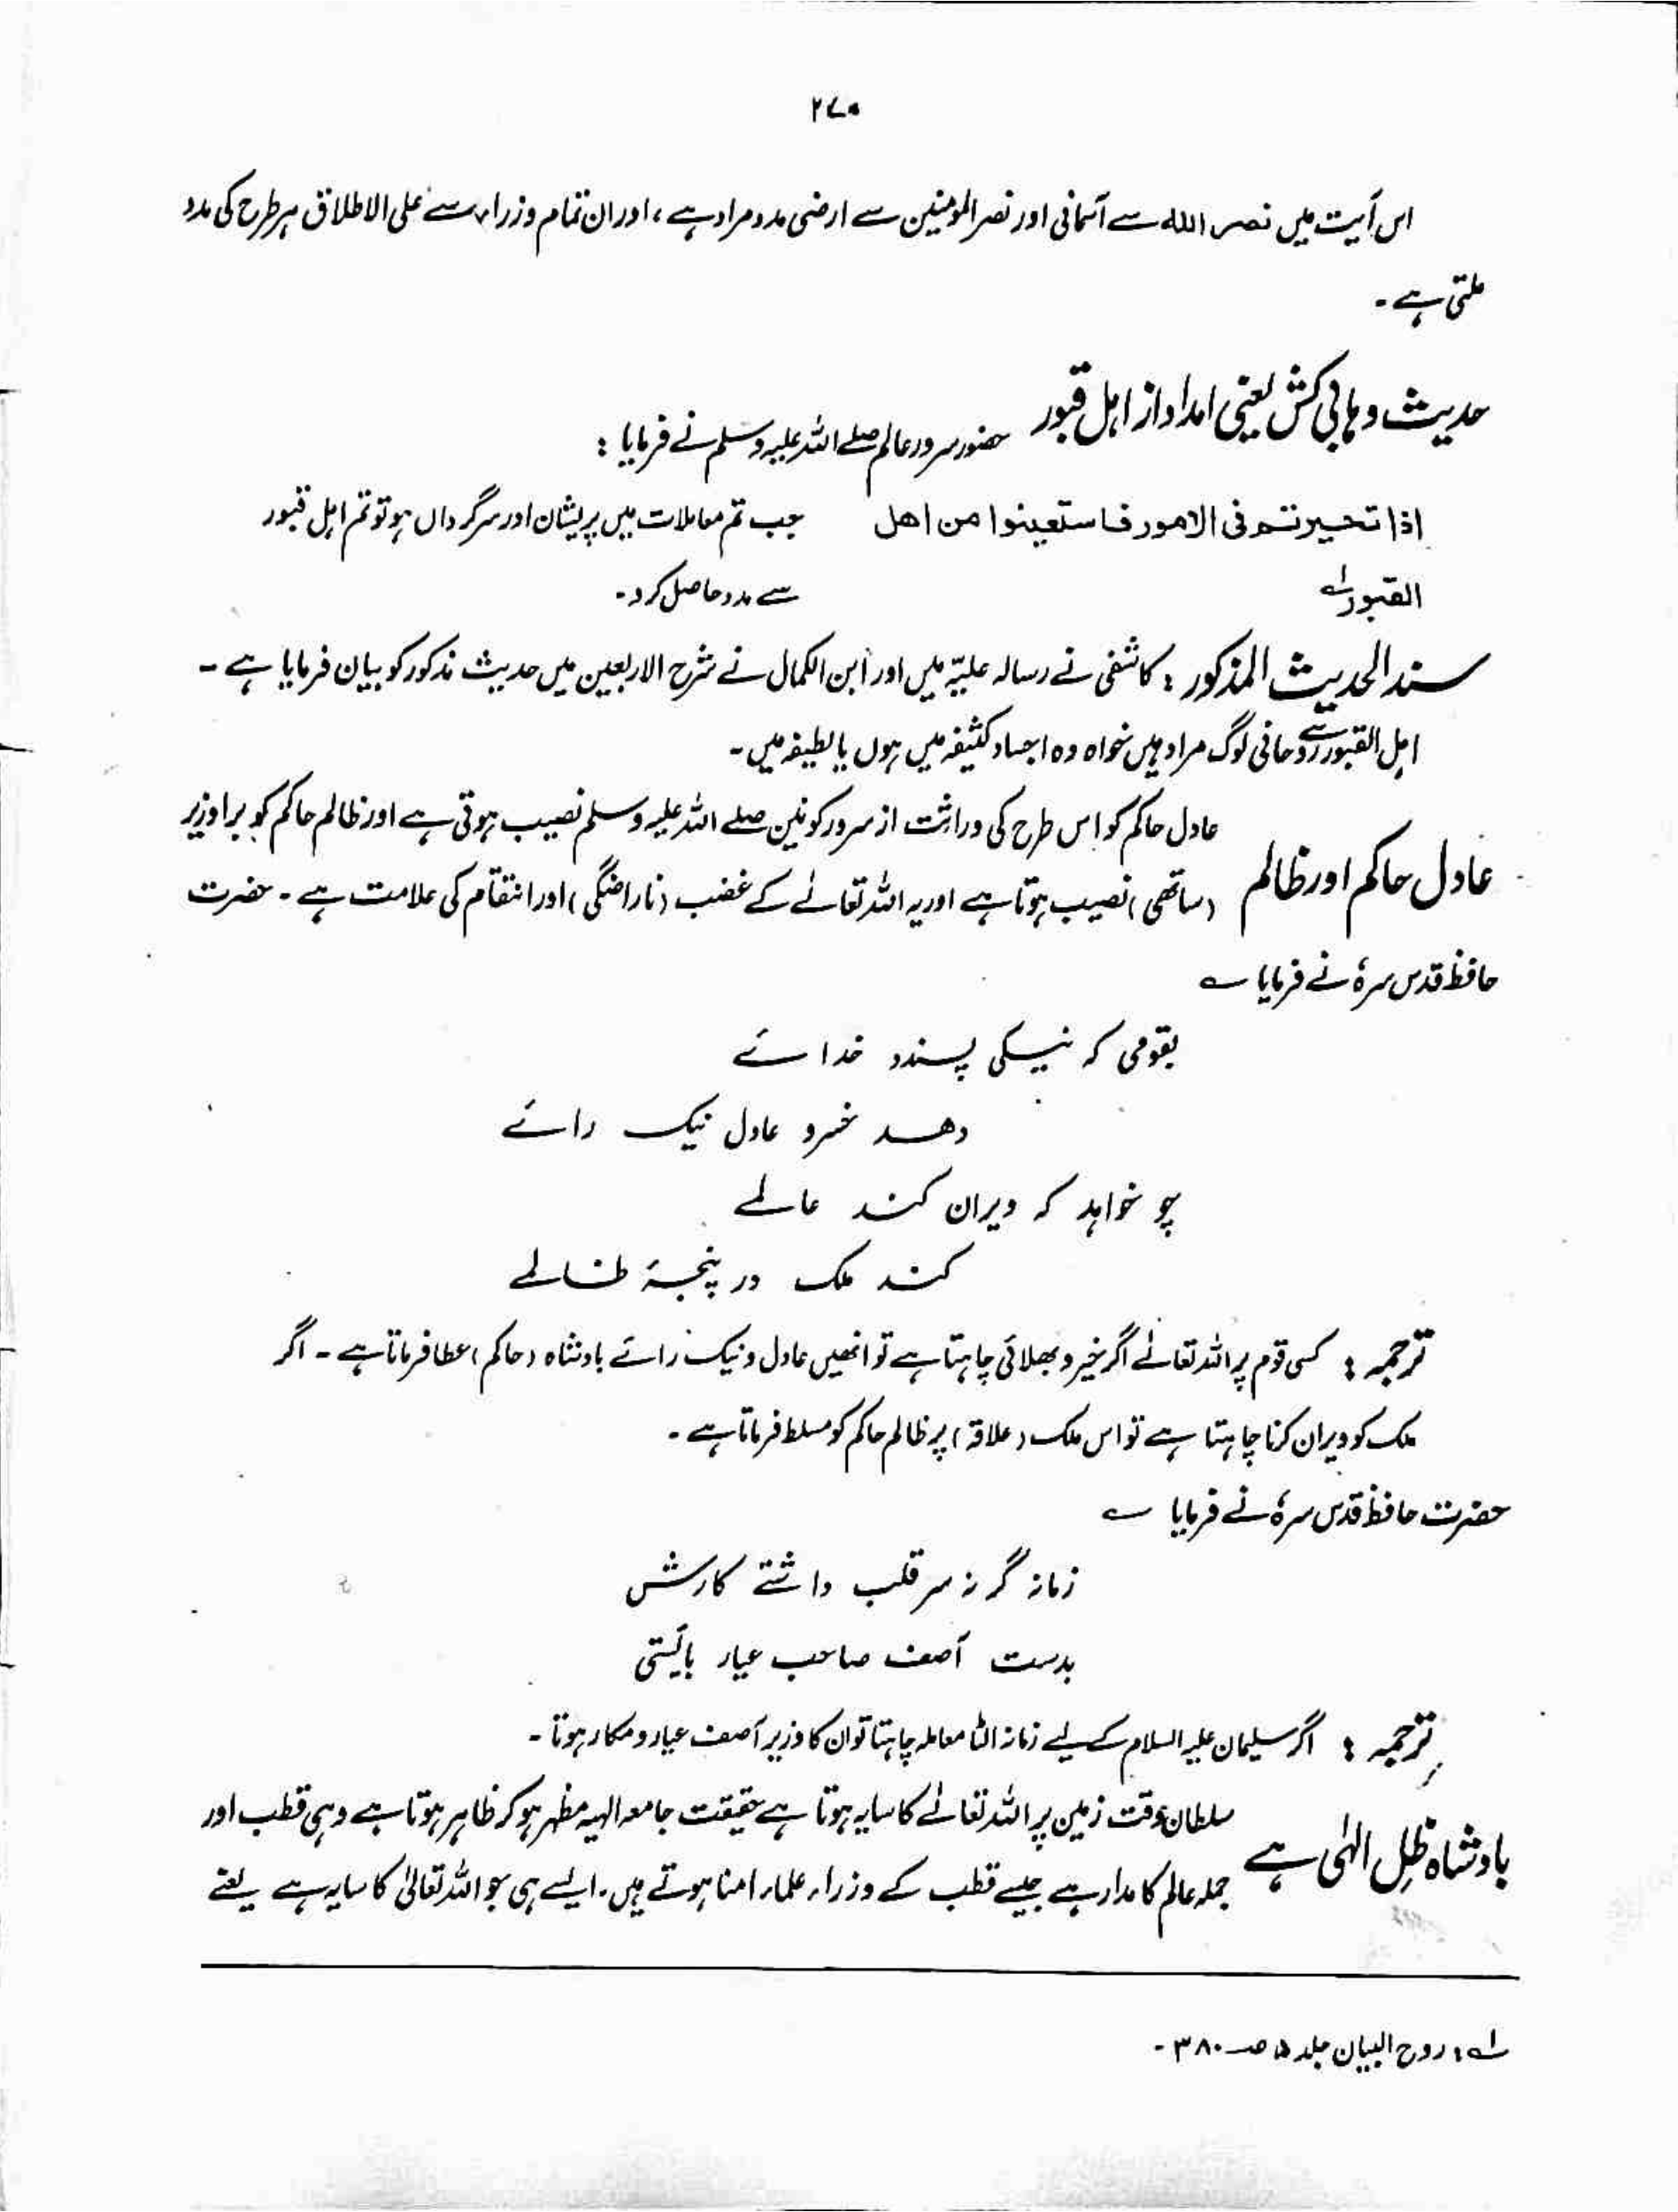 ۲۷۵
اس آیت میں نصر اللہ سے آسمانی اور نصر المؤمنین سے ارضی مدد مراد ہے ، اور ان تمام وزراء سے علی الاطلاق ہر طرح کی مدد
ملتی ہے ۔
حدیث وہابی کش یعنی امداد از اہل قبور حضور سرور عالم صلے اللہ علیہ وسلم نے فرمایا :
اذا تحیرتم فی الامور فاستعینوا من اهل جب تم معاملات میں پریشان اور سرگرداں ہو تو تم اہل قبور
القبور لے سے مدد حاصل کرو ۔
سند الحدیث المذکور : کاشفی نے رسالہ علیّہ میں اور ابن الکمال نے شرح الاربعین میں حدیث مذکور کو بیان فرمایا ہے ۔
اہل القبور سے روحانی لوگ مراد ہیں خواہ وہ اجساد کثیفہ میں ہوں یا لطیفہ میں ۔
عادل حاکم کو اس طرح کی وراثت از سرور کونین صلے اللہ علیہ وسلم نصیب ہوتی ہے اور ظالم حاکم کو برا وزیر
عادل حاکم اور ظالم (ساتھی) نصیب ہوتا ہے اور یہ اللہ تعالےٰ کے غضب (ناراضگی) اور انتقام کی علامت ہے ۔ حضرت
حافظ قدس سرہٗ نے فرمایا ؎
بقومی کہ نیسکی پسندد خدائے
دھد خسرو عادل نیک رائے
چو خواہد کہ ویران کند عالمے
کند ملک در پنجۂ ظالمے
ترجمہ : کسی قوم پر اللہ تعالےٰ اگر خیر و بھلائی چاہتا ہے تو انھیں عادل و نیک رائے بادشاہ (حاکم) عطا فرماتا ہے ۔ اگر
ملک کو ویران کرنا چاہتا ہے تو اس ملک (علاقہ) پر ظالم حاکم کو مسلط فرماتا ہے ۔
حضرت حافظ قدس سرہٗ نے فرمایا ؎
زمانہ گر نہ سر قلب داشتے کارش
بدست آصف صاحب عیار بائستی
ترجمہ : اگر سلیمان علیہ السلام کے لیے زمانہ الٹا معاملہ چاہتا تو ان کا وزیر آصف عیار و مکار ہوتا ۔
سلطان وقت زمین پر اللہ تعالےٰ کا سایہ ہوتا ہے حقیقت جامعہ الہیہ مظہر ہو کر ظاہر ہوتا ہے وہی قطب اور
بادشاہ ظلِ الٰہی ہے جملہ عالم کا مدار ہے جیسے قطب کے وزراء علماء امنا ہوتے ہیں ۔ ایسے ہی جو اللہ تعالیٰ کا سایہ ہے یعنے
لے : روح البیان جلد ۵ صـ ۳۸۰ ۔